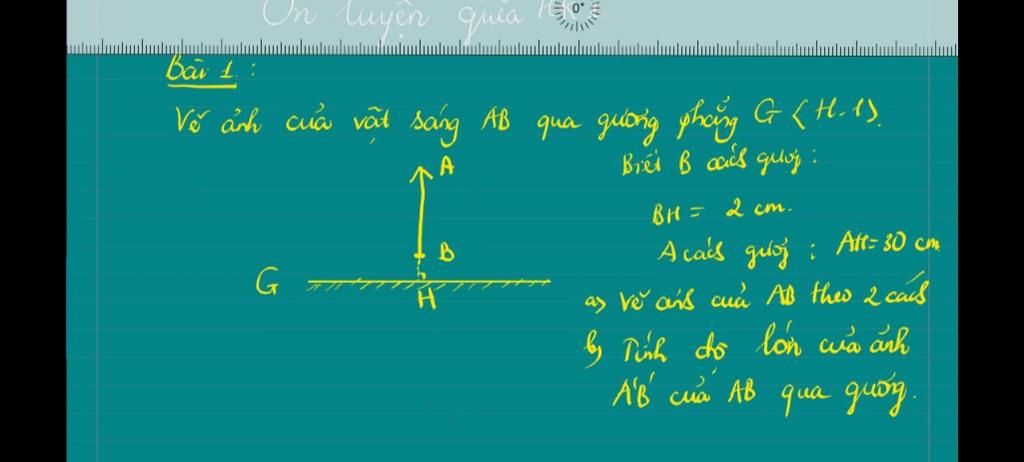 Ôn luyện giữa HK
0°
Bài 1 :
Vẽ ảnh của vật sáng AB qua gương phẳng G (H-1).
Biết B cách gương :
BH = 2 cm.
A cách gương : AH = 30 cm
a) Vẽ ảnh của AB theo 2 cách
b) Tính độ lớn của ảnh
A'B' của AB qua gương.
A
B
G
H